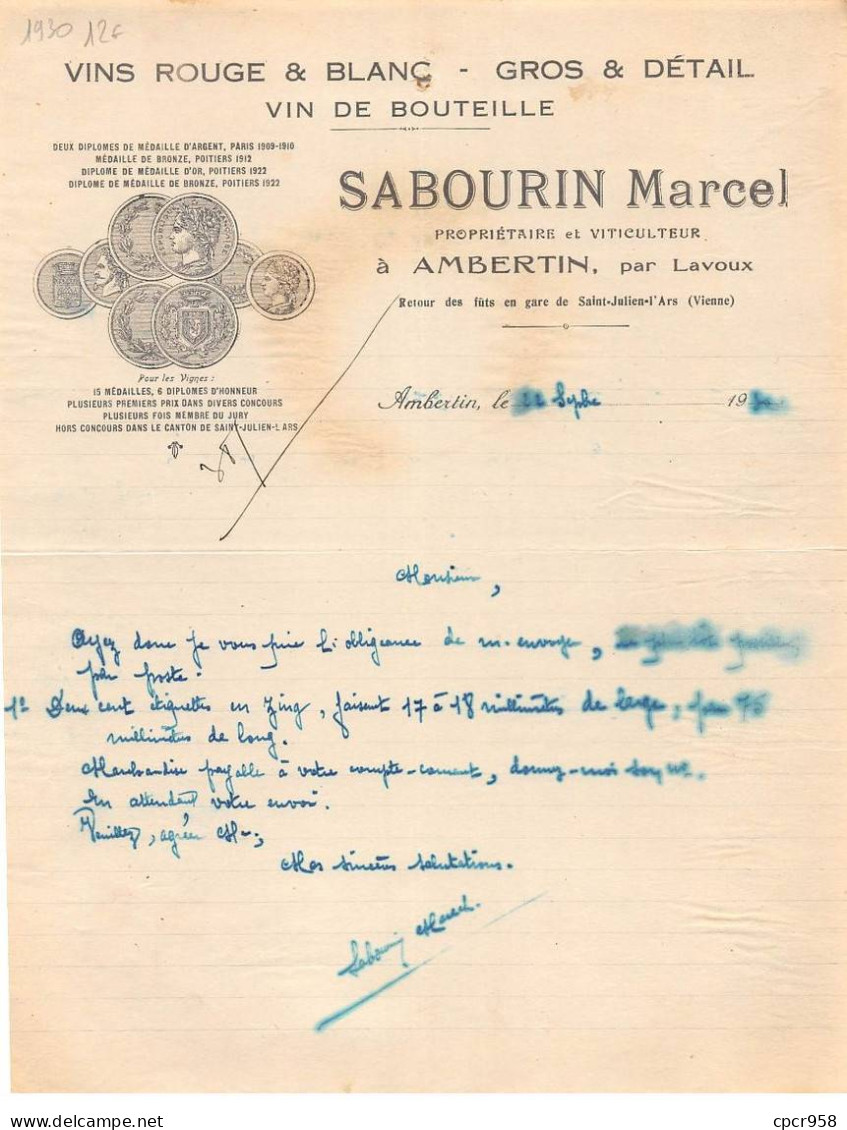 1930 12€
VINS ROUGE & BLANC - GROS & DÉTAIL
VIN DE BOUTEILLE
DEUX DIPLOMES DE MÉDAILLE D'ARGENT, PARIS 1909-1910
MÉDAILLE DE BRONZE, POITIERS 1912
DIPLOME DE MÉDAILLE D'OR, POITIERS 1922
DIPLOME DE MÉDAILLE DE BRONZE, POITIERS 1922
SABOURIN Marcel
PROPRIÉTAIRE et VITICULTEUR
à AMBERTIN, par Lavoux
Retour des fûts en gare de Saint-Julien-l'Ars (Vienne)
Pour les Vignes :
15 MÉDAILLES, 6 DIPLOMES D'HONNEUR
PLUSIEURS PREMIERS PRIX DANS DIVERS CONCOURS
PLUSIEURS FOIS MEMBRE DU JURY
HORS CONCOURS DANS LE CANTON DE SAINT-JULIEN-L'ARS
Ambertin, le 22 Sepbe 1930
Monsieur,
Ayez donc je vous prie l'obligeance de m'envoyer,
par poste:
1º Deux cent étiquettes en zing, faisent 17 à 18 millimètres de large, par 75
millimètres de long.
Marchandise payable à votre compte-courent, donnez-moi son nº.
En attendant votre envoi.
Veuillez, agréer Mr;
Mes sincères salutations.
Sabourin Marcel.
© cpcr958